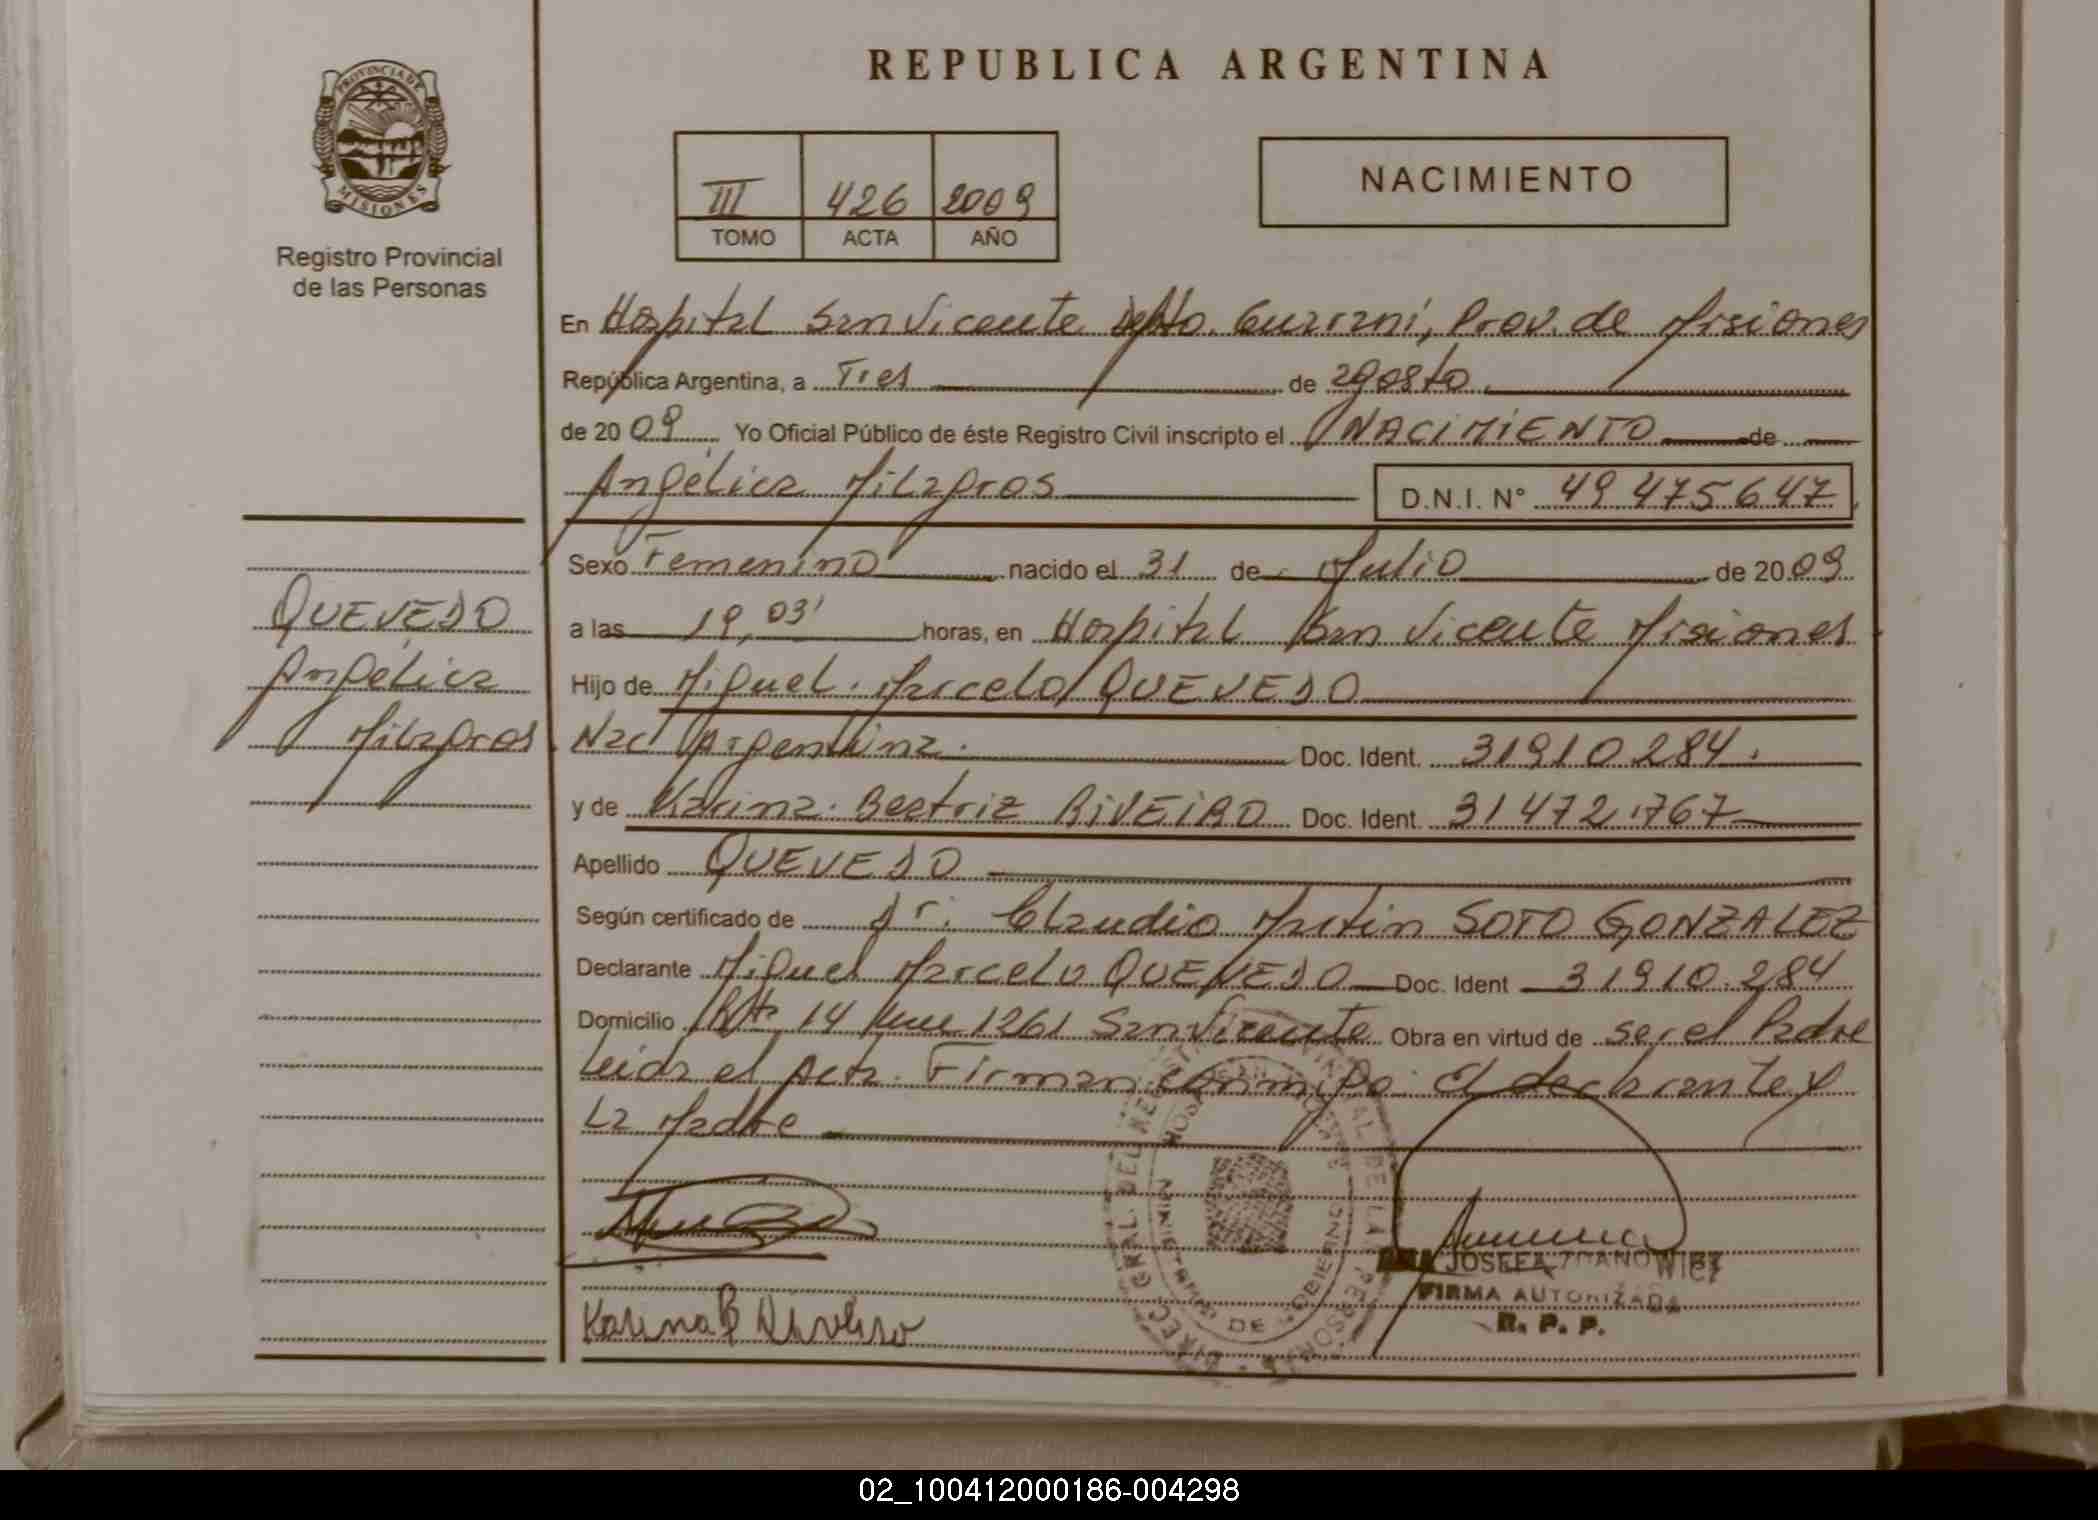 REPUBLICA ARGENTINA
PROVINCIA DE
MISIONES
Registro Provincial
de las Personas
III 426 2009
TOMO ACTA AÑO
NACIMIENTO
En Hospital San Vicente Dpto. Guaraní, Prov. de Misiones
República Argentina, a Tres de agosto
de 2009 Yo Oficial Público de éste Registro Civil inscripto el NACIMIENTO de
Angélica Milagros D.N.I. N° 49 475647
Sexo Femenino nacido el 31 de Julio de 2009
a las 19,03' horas, en Hospital San Vicente Misiones
Hijo de Miguel Marcelo QUEVEDO
Nac Argentina. Doc. Ident. 31910.284.
y de Karina Beatriz RIVEIRO Doc. Ident. 31472.767
Apellido QUEVEDO
Según certificado de Dr. Claudio Martin SOTO GONZALEZ
Declarante Miguel Marcelo QUEVEDO Doc. Ident 31910.284
Domicilio Rta 14 1261 San Vicente Obra en virtud de ser el Padre
Leida el Acta. Firman conmigo el declarante y
La Madre
QUEVEDO
Angélica
Milagros
JOSEFA
FIRMA AUTORIZADA
R. P. P.
Karina B
02_100412000186-004298